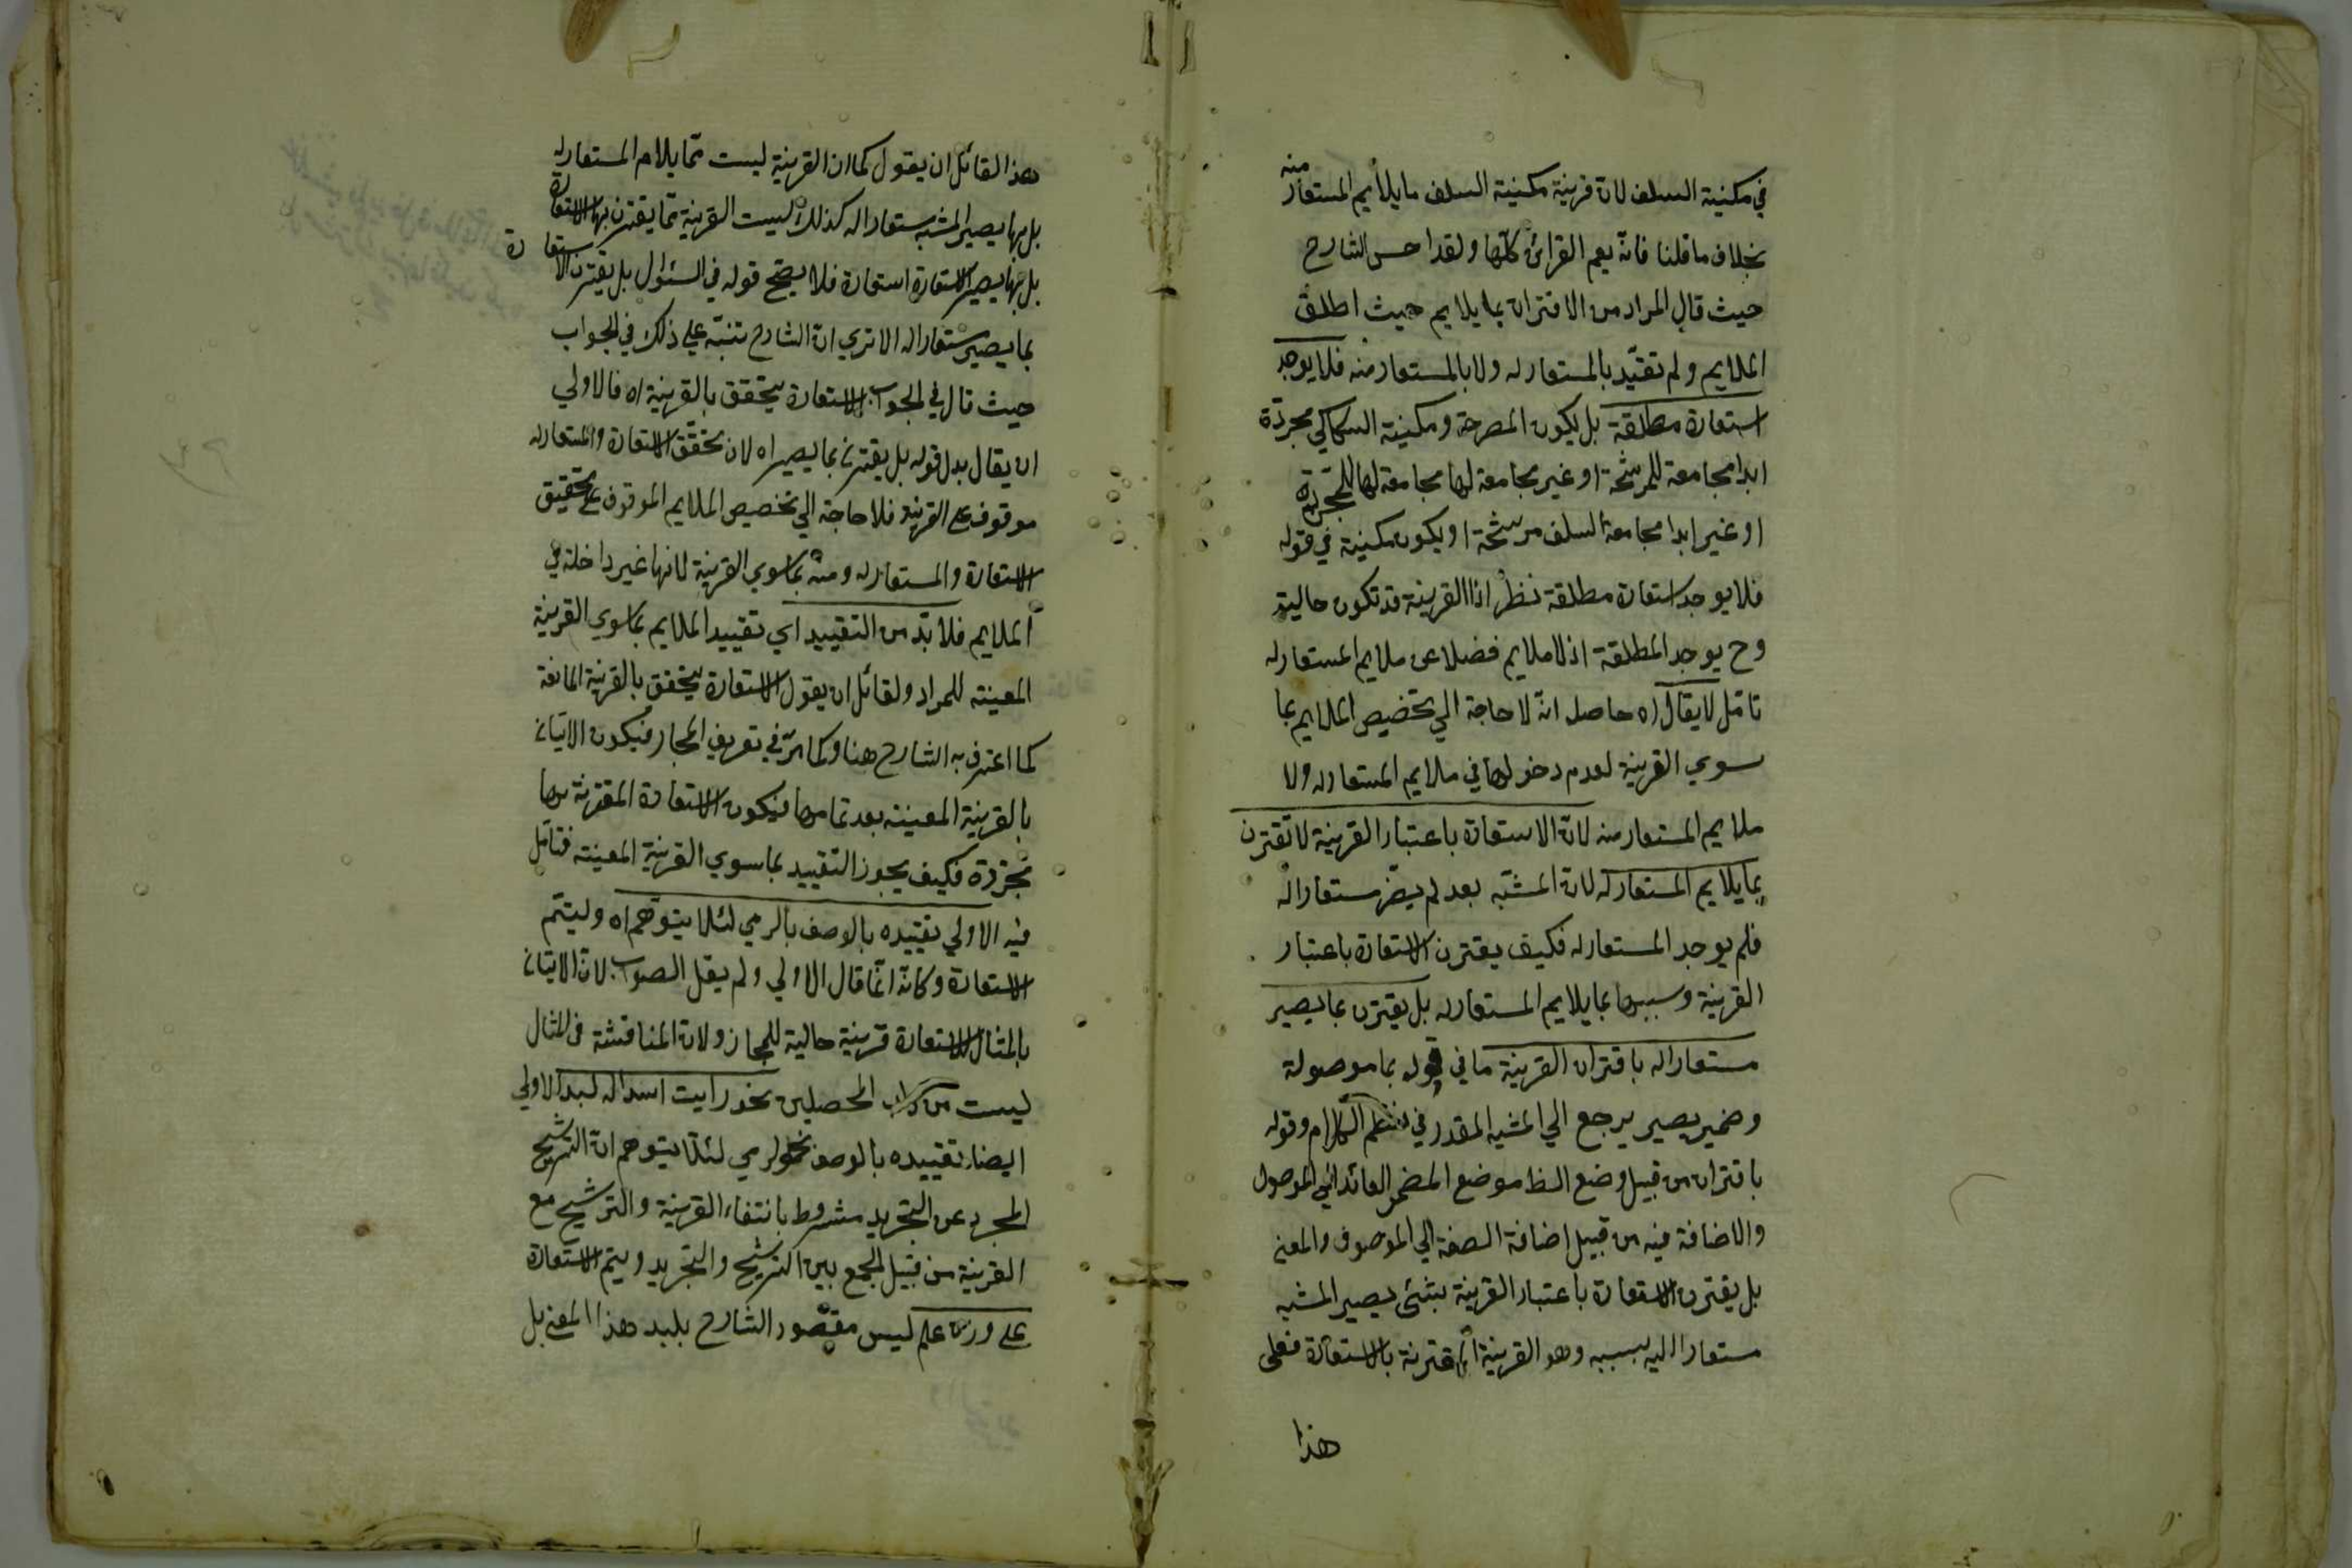 في مكنية السلف لان قرينة مكنية السلف ما يلايم المستعار منه
بخلاف ما قلنا فانه يعم القرائن كلها ولقد احسن الشارح
حيث قال المراد من الاقتران بما يلايم حيث اطلق
الملايم ولم تقيّد بالمستعار له ولا بالمستعار منه فلا يوجد
استعارة مطلقة بل يكون المصرحة ومكنية السكاكي مجردة
ابدا مجامعة للمرشحة او غير مجامعة لها مجامعة لها للمجردة
او غير ابدا مجامعة السلف مرشحة او يكون مكنية في قوله
فلا يوجد استعارة مطلقة نظر اذا القرينة قد تكون حالية
وح يوجد المطلقة اذ لا ملايم فضلا عن ملايم المستعار له
تامل لا يقال اه حاصله انه لا حاجة الي تخصيص الملايم بما
سوي القرينة لعدم دخولها في ملايم المستعار له ولا
ملايم المستعار منه لان الاستعارة باعتبار القرينة لا تقترن
بما يلايم المستعار له لان المشبّه بعد لم يصر مستعارا له
فلم يوجد المستعار له فكيف يقترن الاستعارة باعتبار
القرينة وسببها بما يلايم المستعار له بل يقترن بما يصير
مستعارا له باقتران القرينة ما في قوله بما موصولة
وضمير يصير يرجع الي المشبه المقدر في نظم الكلام وقوله
باقتران من قبيل وضع الظ موضع المضمر العائد الي الموصول
والاضافة فيه من قبيل اضافة الصفة الي الموصوف والمعني
بل يقترن الاستعارة باعتبار القرينة بشئ يصير المشبه
مستعارا اليه بسببه وهو القرينة المقترنة بالاستعارة فعلى
هذا
هذا القائل ان يقول كما ان القرينة ليست مما يلام المستعار له
بل بها يصير المشبه مستعارا له كذلك ليست القرينة مما يقترن بها الاستعارة
بل بها يصير الاستعارة استعارة فلا يصح قوله في السئوال بل يقترن الاستعارة
بما يصير مستعارا له الا تري ان الشارح تنبّه علي ذلك في الجواب
حيث قال في الجواب الاستعارة يتحقق بالقرينة اه فالاولي
ان يقال بدل قوله بل يقترن بما يصير اه لان تحقّق الاستعارة والمستعار له
موقوف علي القرينة فلا حاجة الي تخصيص الملايم الموقوف علي تحقيق
الاستعارة والمستعار له ومنه بما سوي القرينة لانها غير داخلة في
الملايم فلا بدّ من التقييد اي تقييد الملايم بما سوي القرينة
المعينة للمراد ولقائل ان يقول الاستعارة يتحقق بالقرينة المانعة
كما اعترف به الشارح هنا وكما مرّ في تعريف المجاز فيكون الاتيان
بالقرينة المعينة بعد تمامها فيكون الاستعارة المقترنة بها
مجرّدة فكيف يجوز التقييد بما سوي القرينة المعينة فتامّل
فيه الاولي تقييده بالوصف بالرمي لئلا يتوهم اه وليتمّ
الاستعارة وكانه انما قال الاولي ولم يقل الصواب لان الاتيان
بالمثال للاستعارة قرينة حالية للمجاز ولان المناقشة في المثال
ليست من داب المحصلين نحو رايت اسدا له لبد الاولي
ايضا تقييده بالوصف نحو لرمي لئلا يتوهم ان الترشيح
المجرد عن التجريد مشروط بانتفاء القرينة والترشيح مع
القرينة من قبيل الجمع بين الترشيح والتجريد ويتم الاستعارة
علي ليس مقصود الشارح بلبد هذا المعني بل